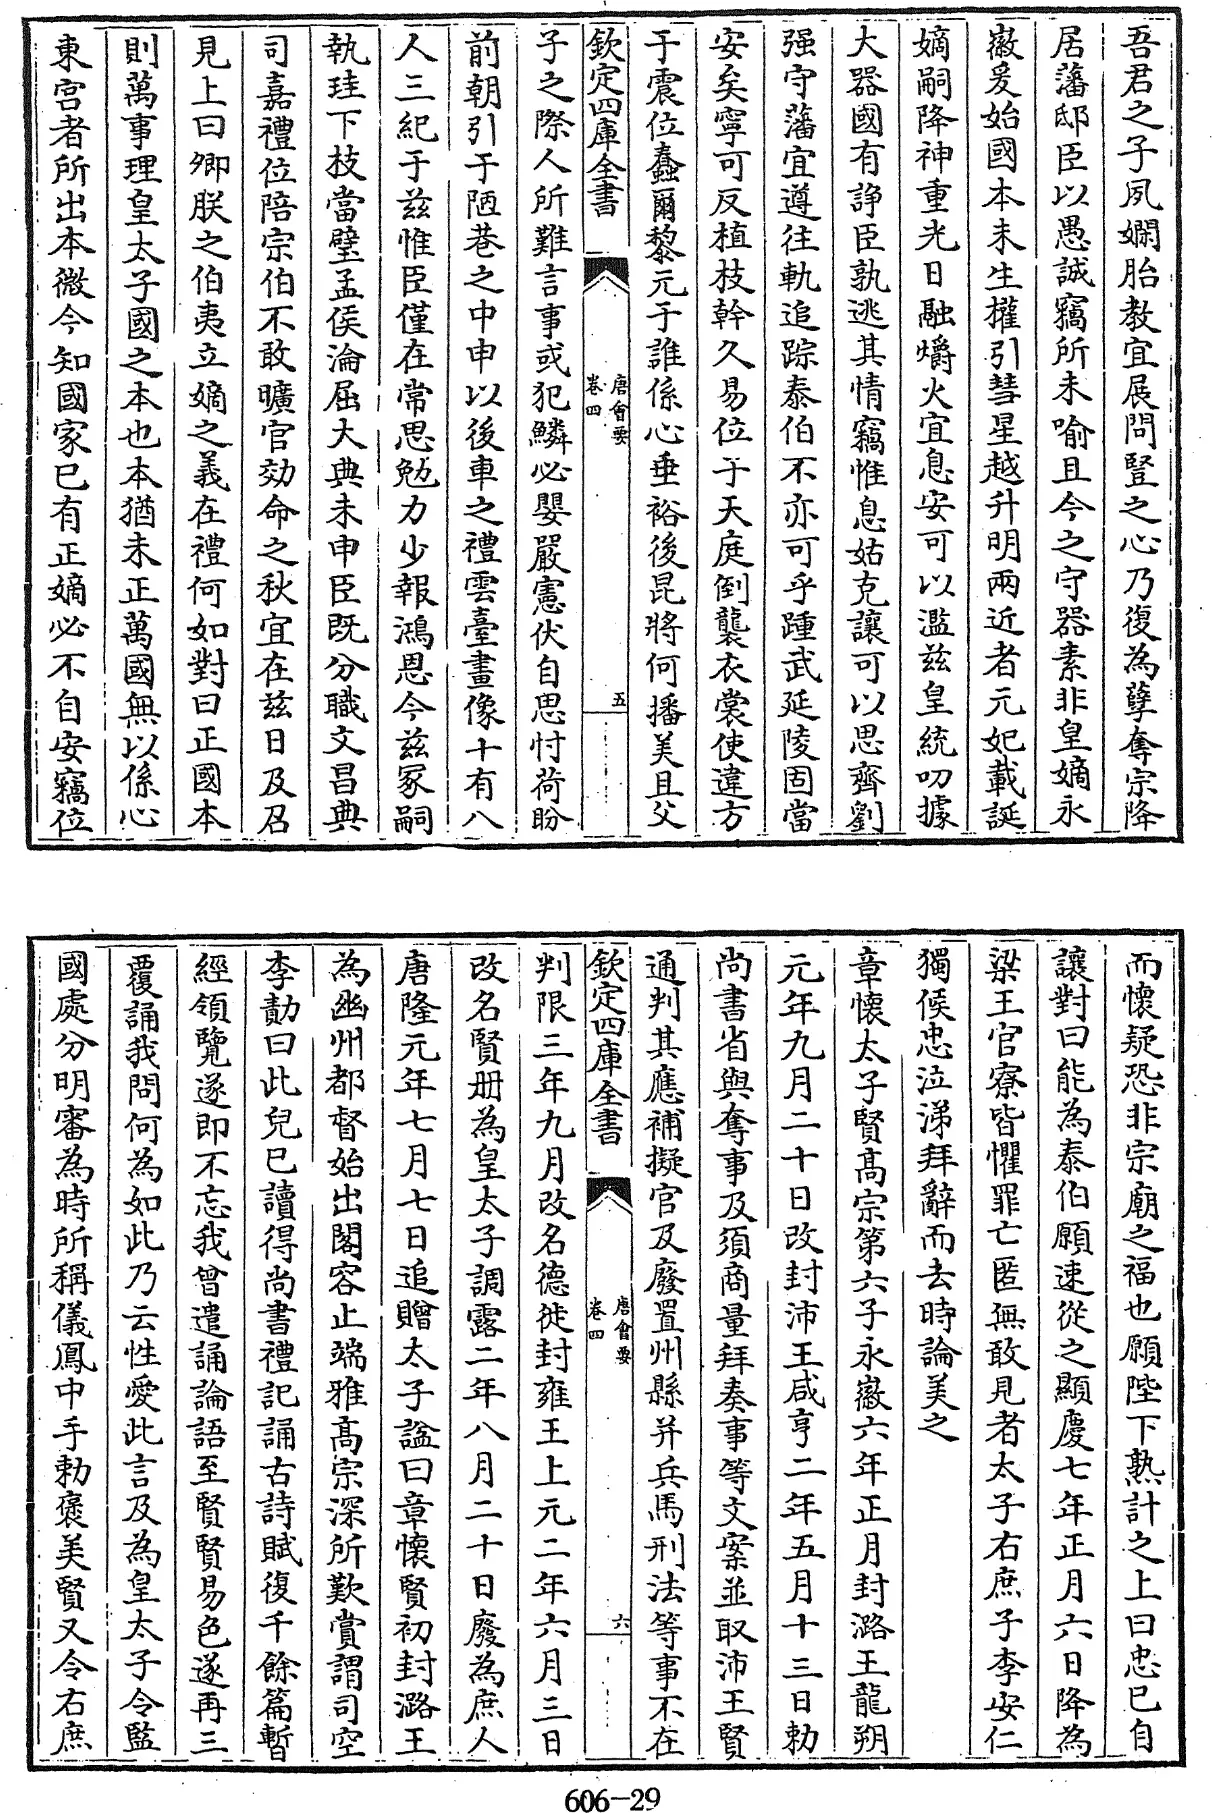 吾君之子夙嫻胎教宜展問豎之心乃復為孽奪宗降
居藩邸臣以愚誠竊所未喻且今之守器素非皇嫡永
徽爰始國本未生權引彗星越升明兩近者元妃載誕
嫡嗣降神重光日融爝火宜息安可以濫茲皇統叨據
大器國有諍臣孰逃其情竊惟息姑克讓可以思齊劉
强守藩宜遵往軌追踪泰伯不亦可乎踵武延陵固當
安矣寧可反植枝幹久易位于天庭倒襲衣裳使違方
于震位蠢爾黎元于誰係心垂裕後昆將何播美且父
欽定四庫全書
唐會要
卷四
五
子之際人所難言事或犯鱗必嬰嚴憲伏自思忖荷盼
前朝引于陋巷之中申以後車之禮雲臺畫像十有八
人三紀于茲惟臣僅在常思勉力少報鴻恩今茲冢嗣
執珪下枝當璧孟侯淪屈大典未申臣既分職文昌典
司嘉禮位陪宗伯不敢曠官効命之秋宜在茲日及召
見上曰卿朕之伯夷立嫡之義在禮何如對曰正國本
則萬事理皇太子國之本也本猶未正萬國無以係心
東宮者所出本微今知國家已有正嫡必不自安竊位
而懷疑恐非宗廟之福也願陛下熟計之上曰忠已自
讓對曰能為泰伯願速從之顯慶七年正月六日降為
梁王官寮皆懼罪亡匿無敢見者太子右庶子李安仁
獨候忠泣涕拜辭而去時論美之
章懷太子賢高宗第六子永徽六年正月封潞王龍朔
元年九月二十日改封沛王咸亨二年五月十三日勅
尚書省與奪事及須商量拜奏事等文案並取沛王賢
通判其應補擬官及廢置州縣并兵馬刑法等事不在
欽定四庫全書
唐會要
卷四
六
判限三年九月改名德徙封雍王上元二年六月三日
改名賢册為皇太子調露二年八月二十日廢為庶人
唐隆元年七月七日追贈太子諡曰章懷賢初封潞王
為幽州都督始出閣容止端雅高宗深所歎賞謂司空
李勣曰此兒已讀得尚書禮記誦古詩賦復千餘篇暫
經領覽遂即不忘我曾遣誦論語至賢賢易色遂再三
覆誦我問何為如此乃云性愛此言及為皇太子令監
國處分明審為時所稱儀鳳中手勅褒美賢又令右庶
606-29